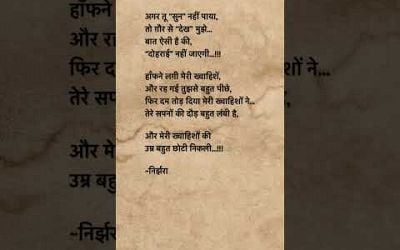 अगर तू "सुन" नहीं पाया,
तो ग़ौर से "देख" मुझे...
बात ऐसी है की,
"दोहराई" नहीं जाएगी...!!!
हाँफने लगी मेरी ख्वाहिशें,
और रह गई तुझसे बहुत पीछे,
फिर दम तोड़ दिया मेरी ख्वाहिशों ने...
तेरे सपनों की दौड़ बहुत लंबी है,
और मेरी ख्वाहिशों की
उम्र बहुत छोटी निकली...!!!
~निर्झरा